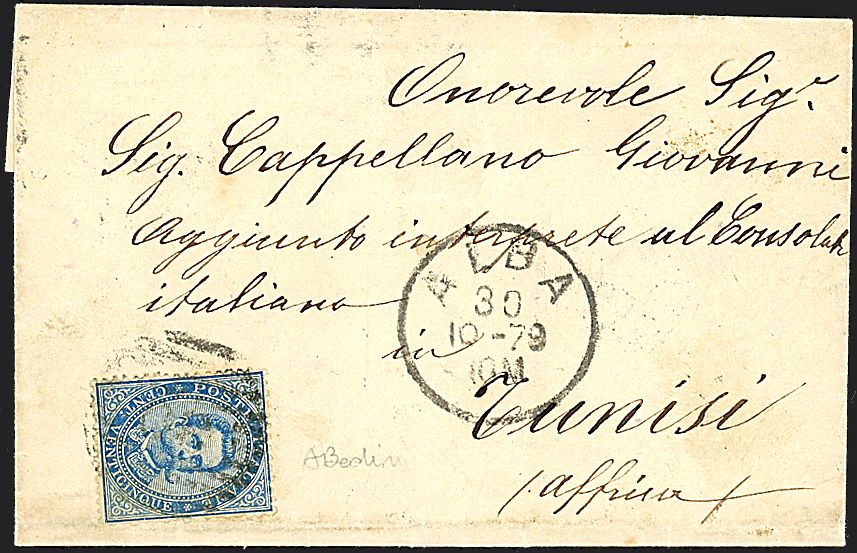 Onorevole Sigr.
Sig. Cappellano Giovanni
Aggiunto interprete al Consolato
italiano
in
Tunisi
(Affrica)
ALBA
30
10 - 79
10M
POSTE ITALIANE
CENT. VENTICINQUE